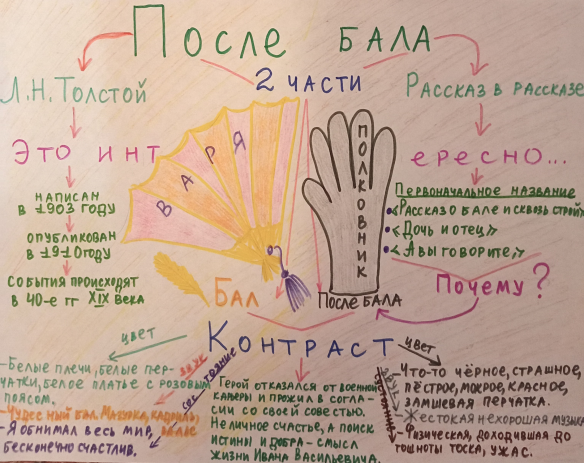 После бала
Л.Н.Толстой
2 части
Рассказ в рассказе
Это инт
ересно...
Варя
Полковник
написан
в 1903 году
опубликован
в 1910году
События происходят
в 40-е гг XIX века
Первоначальное название
«Рассказ о бале и сквозь строй»
«Дочь и отец»
«А вы говорите»
Почему?
Бал
После бала
Контраст
цвет
цвет
звук
состояние
звук
-Белые плечи, белые пер-
чатки, белое платье с розовым
поясом.
-Чудесный бал. Мазурка, кадриль,
вальс
-Я обнимал весь мир,
бесконечно счастлив.
Герой отказался от военной
карьеры и прожил в согла-
сии со своей совестью.
Не личное счастье, а поиск
истины и добра- смысл
жизни Ивана Васильевича.
-Что-то чёрное, страшное,
пёстрое, мокрое, красное,
замшевая перчатка.
-Жестокая нехорошая музыка
-Физическая, доходившая до
тошноты тоска, ужас.